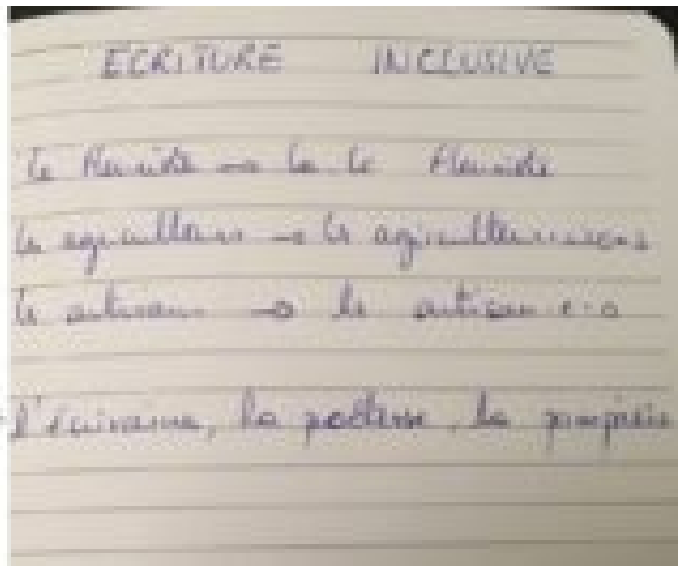 ECRITURE INCLUSIVE
le fleuriste → la.le fleuriste
les agriculteurs → les
les artisans → les artisan.e.s
l'écrivaine, la poétesse, la pompière